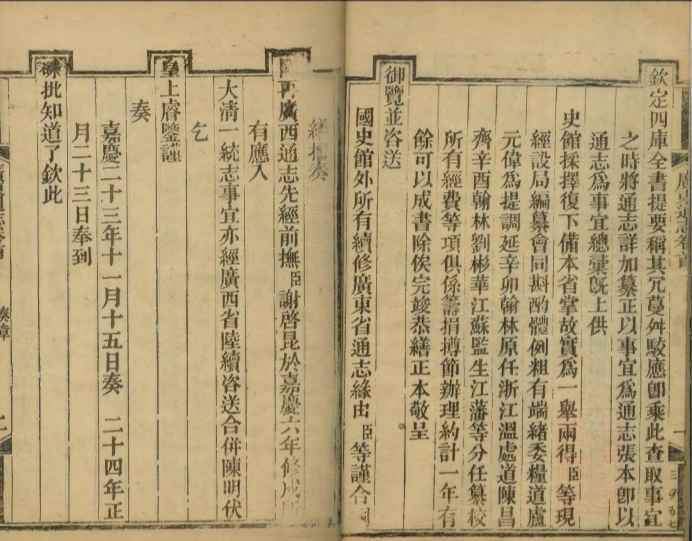 欽定四庫全書提要稱其冗蔓舛駁應卽乘此查取事宜
之時將通志詳加纂正以事宜爲通志張本卽以
通志爲事宜總彙旣上供
史館採擇復下備本省掌故實爲一舉兩得臣等現
經設局編纂會同斟酌體例粗有端緒委糧道盧
元偉爲提調延辛卯翰林原任浙江溫處道陳昌
齊辛酉翰林劉彬華江蘇監生江藩等分任纂校
所有經費等項俱係籌捐撙節辦理約計一年有
餘可以成書除俟完竣恭繕正本敬呈
御覽並咨送
國史館外所有續修廣東省通志緣由臣等謹合
奏
再廣西通志先經前撫臣謝啓昆於嘉慶六年修
有應入
大清一統志事宜亦經廣西省陸續咨送合併陳明伏
乞
皇上睿鑒謹
奏
嘉慶二十三年十一月十五日奏 二十四年正
月二十三日奉到
硃批知道了欽此
奏章